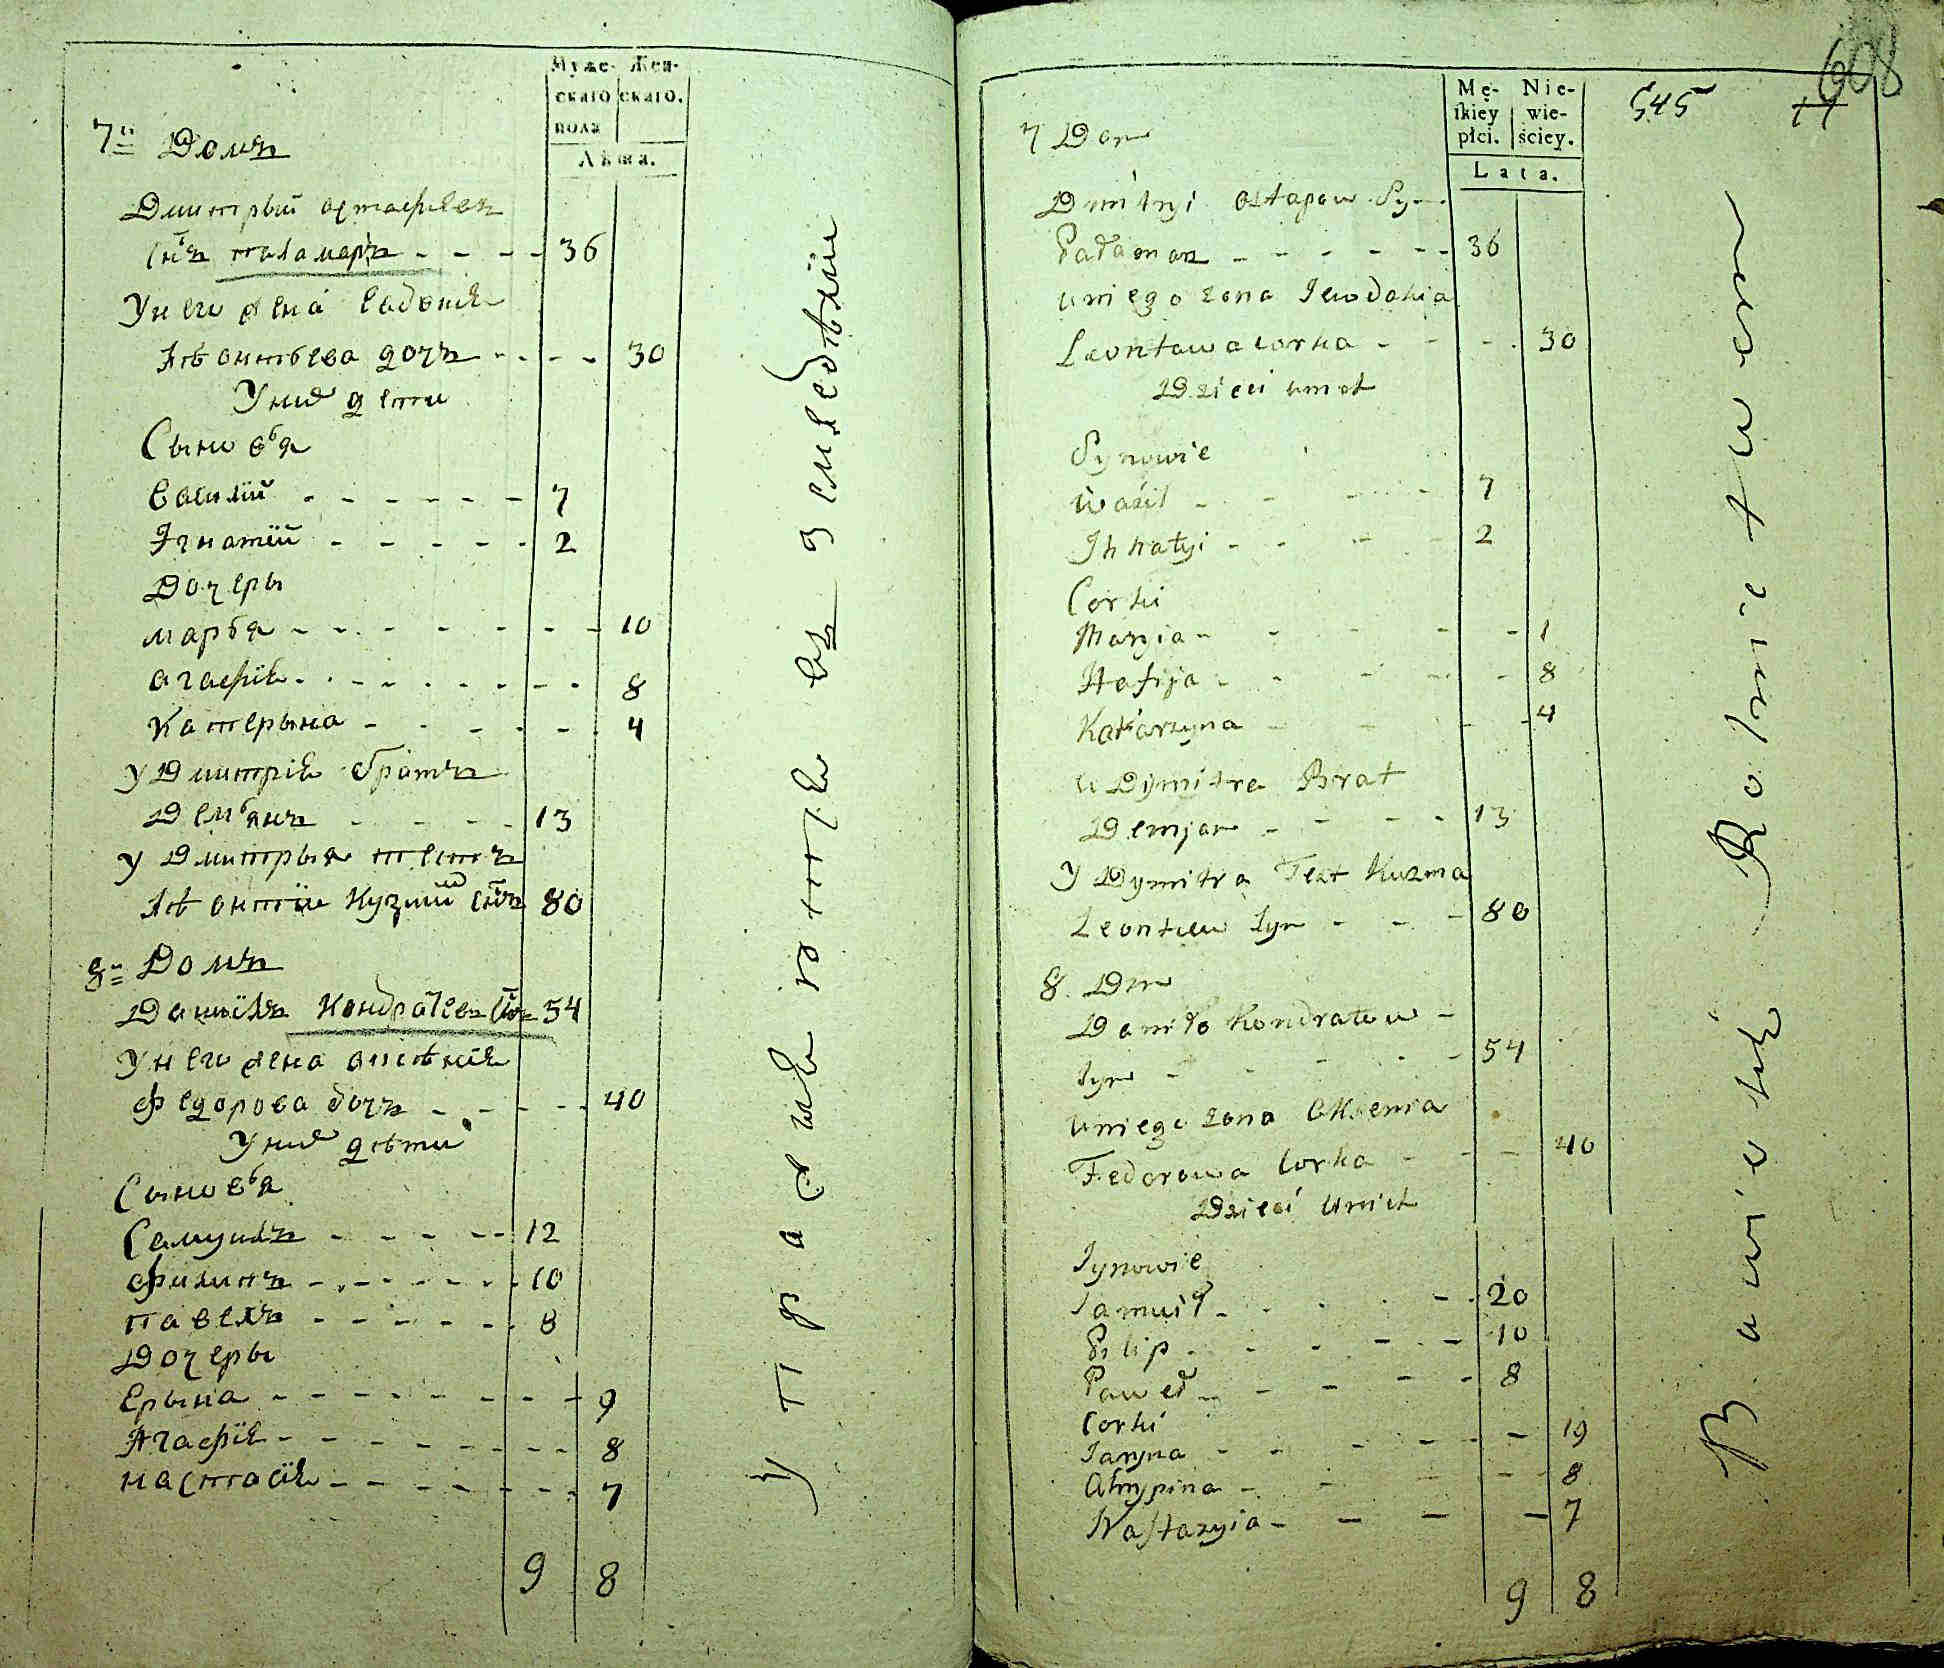 Муже-
скаго
пола
Жен-
скаго.
Лѣта.
7й Домъ
Дмитрый остафиевъ
Снъ паламаръ - - - - 36
У него жена Евдокия
Лѣонтьева дочъ - - - - 30
У них дети
Сыновья
Василий - - - - - - 7
Игнатий - - - - - 2
Дочеры
Марья - - - - - - - - 10
агафія - - - - - - - - 8
Катерына - - - - - - 4
У Дмитрія братъ
Демьянъ - - - - 13
У Дмитрыя тестъ
Лѣонтіи Кузмин Снъ 80
8й Домъ
Данiилъ Кондратевъ Снъ 54
У него жена
Федорова дочъ - - - - 40
У них дѣти
Сыновья
Самуилъ - - - - - - 12
Филипъ - - - - - - - 10
павелъ - - - - - - 8
Дочеры
Ерына - - - - - - - - 9
Агафія - - - - - - - - 8
настасія - - - - - - - 7
9 8
Упражняются въ земледѣліи
608
545
Mę-
skiey
płci.
Nie-
wie-
ściey.
Lata.
7 Dom
Dmitryi Ostapow Syn
Pałamarz - - - - - - 36
u niego żona Jewdokia
Leontowa corka - - - - 30
Dzieci u nich
Synowie
Wasil - - - - 7
Ihnatyi - - - - 2
Corki
Maryia - - - - - 1
Hafija - - - - - 8
Katarzyna - - - - 4
u Dymitra Brat
Demjan - - - - 13
Y Dymitra Test Kuzma
Leontiew Syn - - - 80
8. Dom
Daniło Kondratow -
Syn - - - - - 54
u niego żona Oksenia
Fedorowa Corka - - - 40
Dzieci u nich
Synowie
Samuił - - - - - 20
Filip - - - - - 10
Paweł - - - - - 8
Corki
Jaryna - - - - - - 19
Ahrypina - - - - - 8
Nastazyia - - - - 7
9 8
Bawią się Rolnictwem